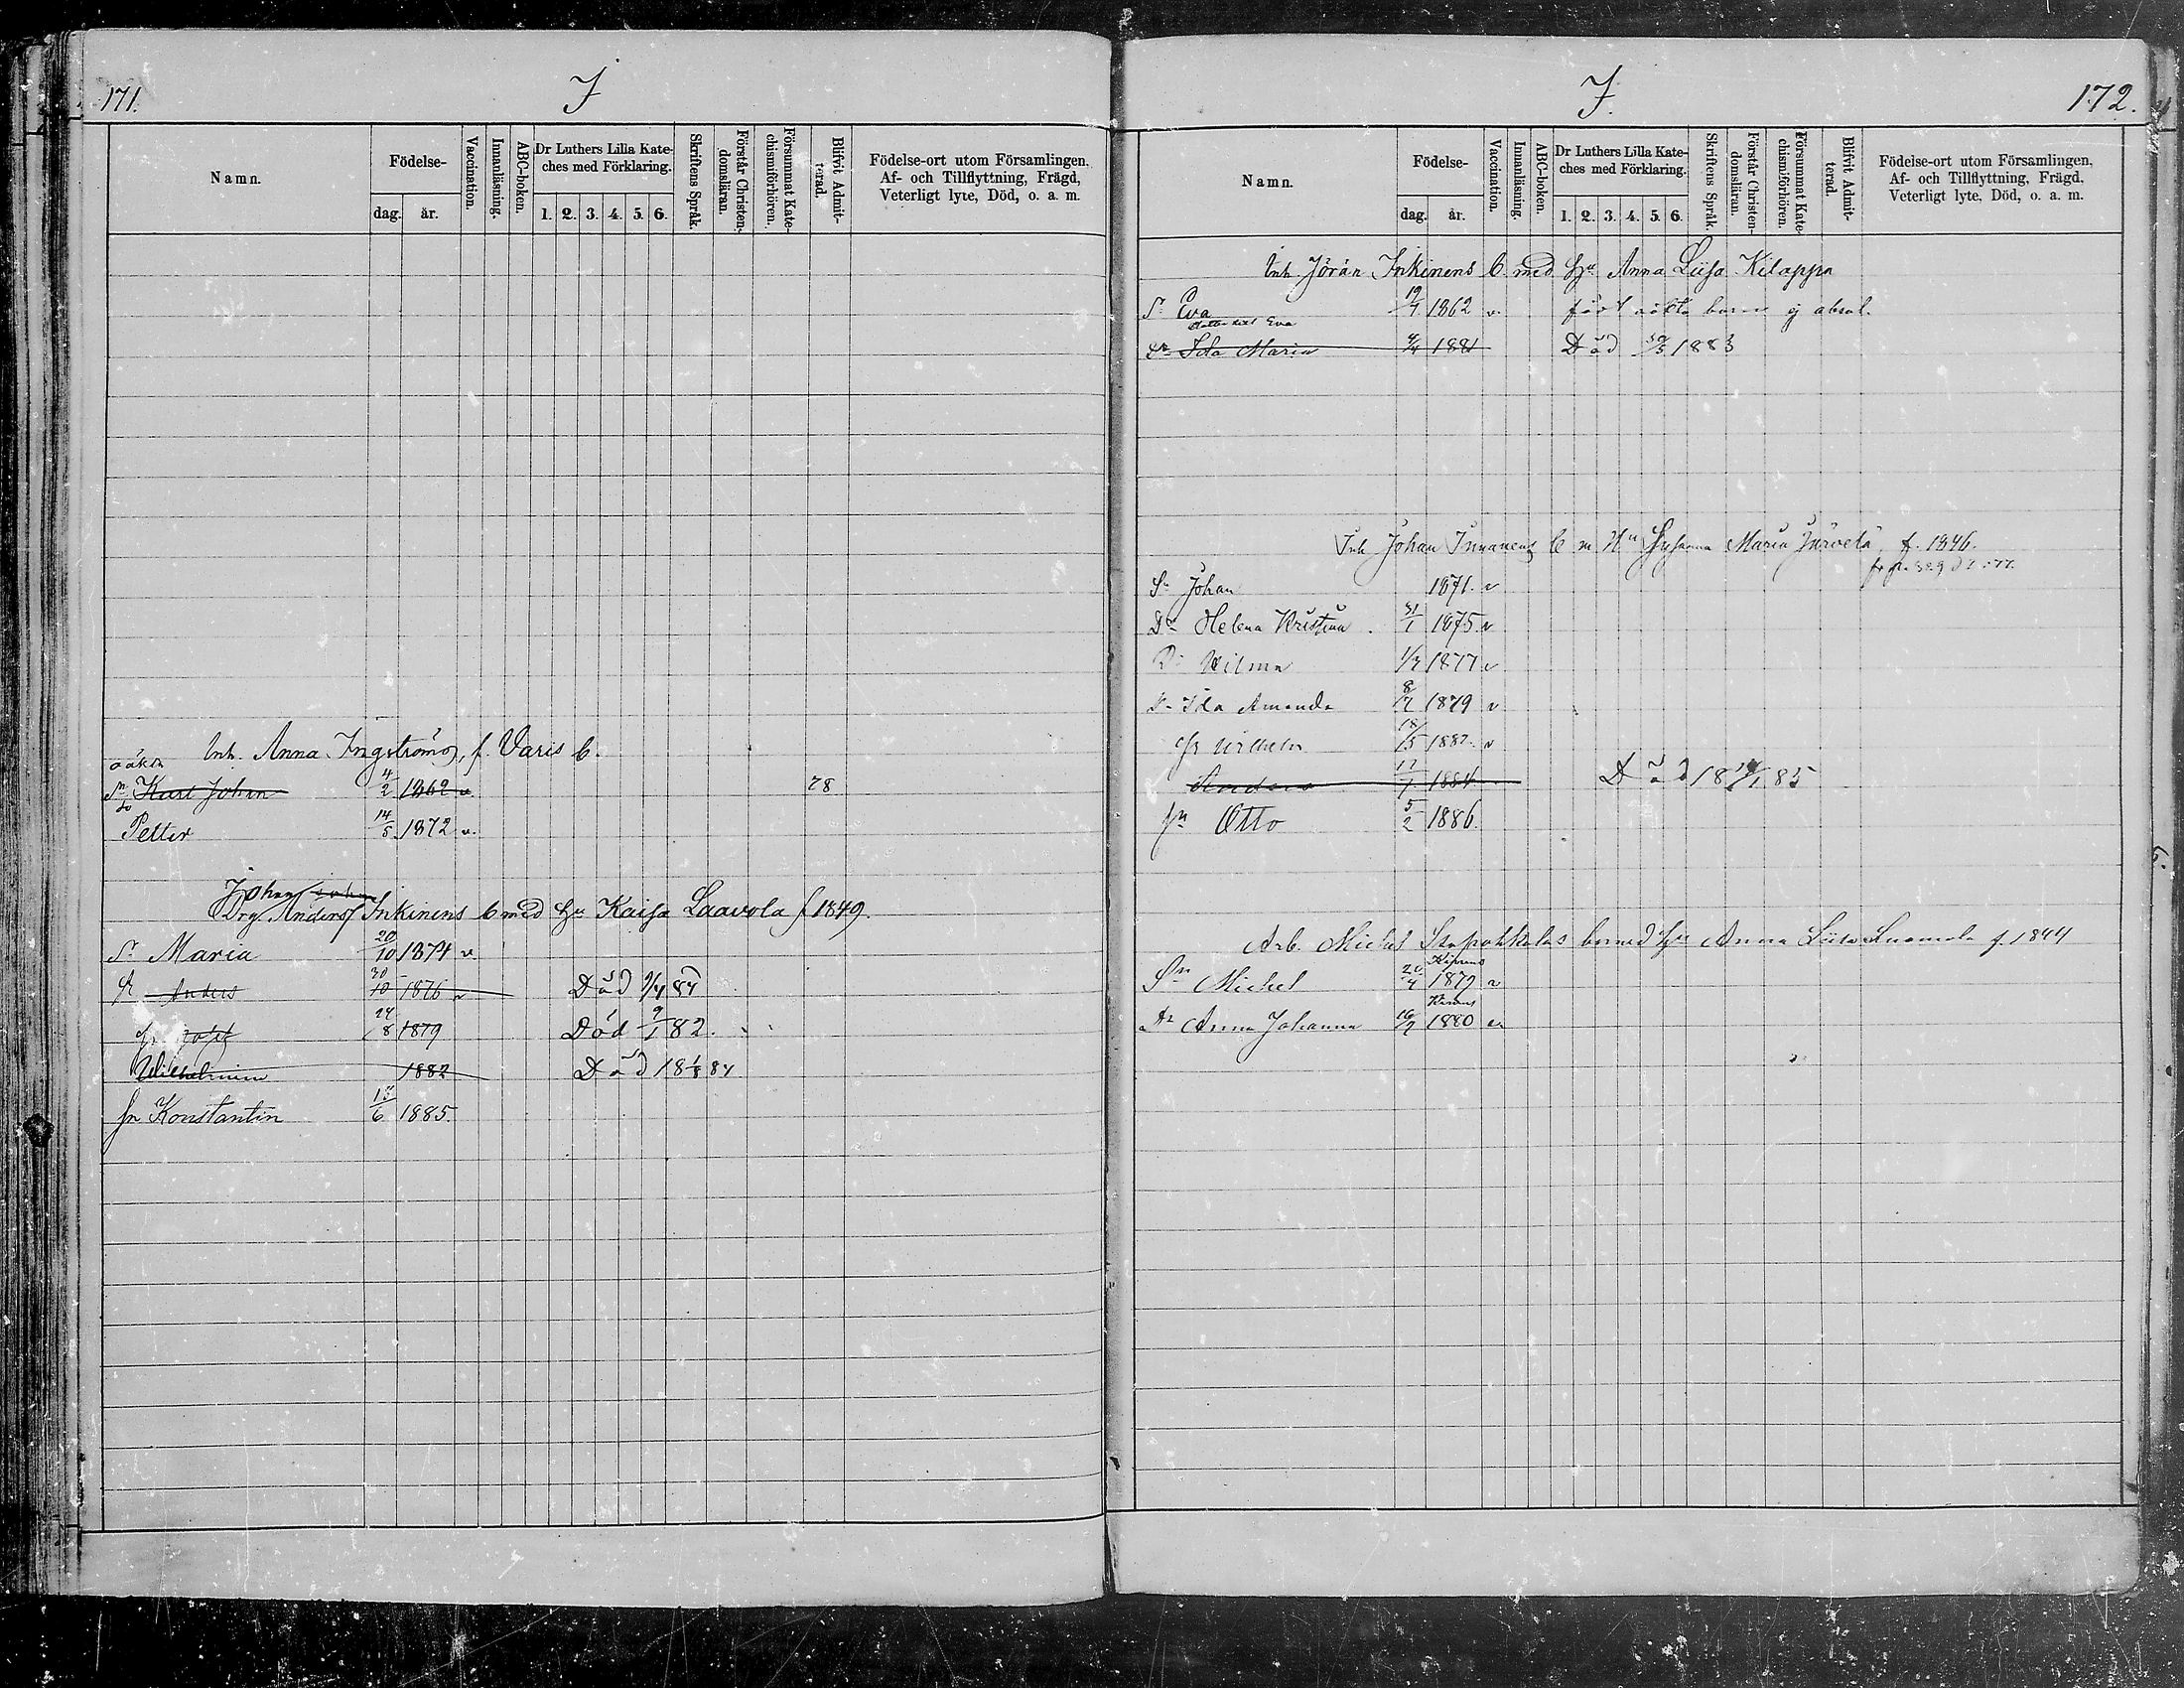 171.
J
Namn.
Födelse-
dag. år.
Vaccination.
Innanläsning.
ABC-boken.
Dr Luthers Lilla Kate-
ches med Förklaring.
1. 2. 3. 4. 5. 6.
Skriftens Språk.
Förstår Christen-
domsläran.
Försummat Kate-
chismiförhören.
Blifvit Admit-
terad.
Födelse-ort utom Församlingen,
Af- och Tillflyttning, Frägd,
Veterligt lyte, Död, o. a. m.
Inh. Anna Ingströms, f. Varis b.
oäkta
Sn Karl Johan 4/2 1862 v. 78
do
Petter 14/5 1872 v.
Johan
Drg. Anders Inkinens b med Hu Kaisa Laavola f 1849.
Maria 20/10 1874 v.
Anders 30/10 1876 v Död 9/4 84
24/8 1879 Död 9/1 82.
Wilhelmina 1882 Död 18 1/8 84
Sn Konstantin 15/6 1885.
J.
172.
Namn.
Födelse-
dag. år.
Vaccination.
Innanläsning.
ABC-boken.
Dr Luthers Lilla Kate-
ches med Förklaring.
1. 2. 3. 4. 5. 6.
Skriftens Språk.
Förstår Christen-
domsläran.
Försummat Kate-
chismiförhören.
Blifvit Admit-
terad.
Födelse-ort utom Församlingen,
Af- och Tillflyttning, Frägd,
Veterligt lyte, Död, o. a. m.
Inh. Jöran Inkinens b. med Hu Anna Liisa Kilappa
Eva 19/4 1862 v. födt oäkta barn ej absol.
Eva
Ida Maria 4/4 1881 Död 1883
Inh Johan Innanens b m Hu Susanna Maria Järvelä f. 1846.
Sn Johan 1871. v
Dr Helena Kristina 31/1 1875 v
Dr Wilma 1/7 1877 v
Dr Ida Amanda 8/7 1879 v
Sn Wilhelm 18/5 1882. v
Anders 17/1 1884 Död 18 85
Sn Otto 5/2 1886.
Arb. Michel b med Hu Anna Liisa f. 1844
Sn Michel 20/4 1879 v
Dr Anna Johanna 16/7 1880 v